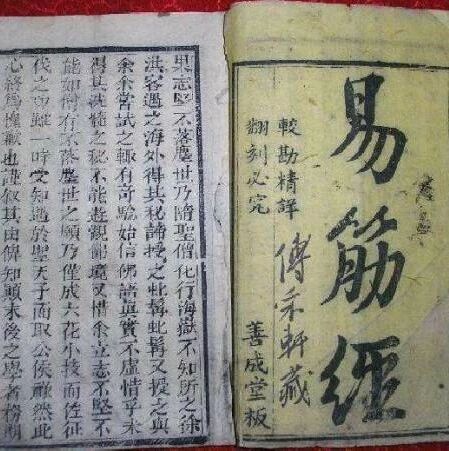 易筋經
較勘精詳
翻刻必究
傅禾軒藏
善成堂板
果志堅不落塵世乃隨聖僧化行海嶽不知所之徐
洪客遇之海外得其秘諦授之虬髯虬髯又授之與
余余嘗試之輒有奇驗始信佛語真實不虛情乎未
得其洗髓之秘不能遊觀佛境又惜余立志不堅不
能如僧有不落塵世之願乃僅成六花小技而佐征
伐之功雖一時受知遇於聖天子而取公侯雖然此
心終爲愧歉也謹叙其由俾知顛末後之學者務期